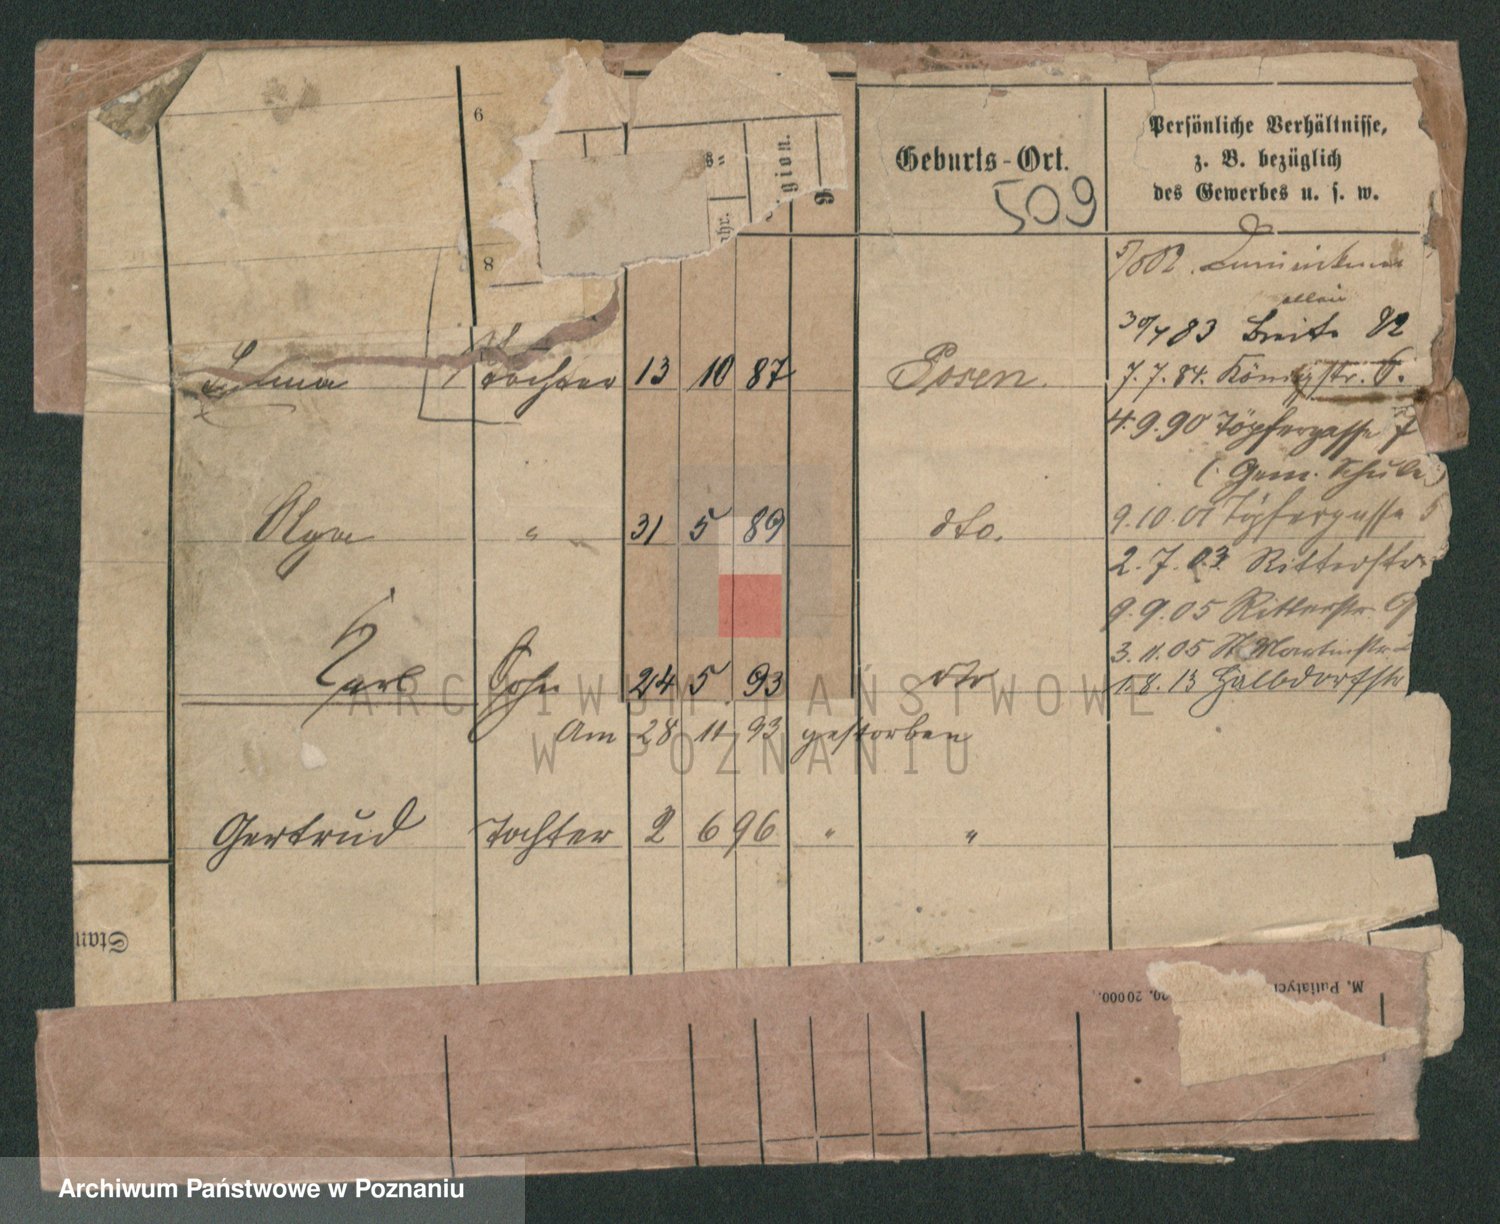 6
8
gion.
Geburts-Ort.
509
Persönliche Verhältnisse,
z. B. bezüglich
des Gewerbes u. s. w.
30/4 83 Breite 82
Tochter 13 10 87 Posen.
7. 7. 84. Königstr. 6.
4. 9. 90 Töpfergasse 7
(Gem. Schule)
Olga " 31 5 89 dto.
9. 10. 01 Töpfergasse 5
2. 7. 03 Ritterstr
9. 9. 05 Ritterstr. 9
3. 11. 05 St Martinstr
Karl Sohn 24 5 93 dto
1. 8. 13 Halbdorfstr
Am 28 11 93 gestorben
Gertrud Tochter 2 6 96 " "
Stan
M. Putiatyc
20 000.
ARCHIWUM PAŃSTWOWE
W POZNANIU
Archiwum Państwowe w Poznaniu